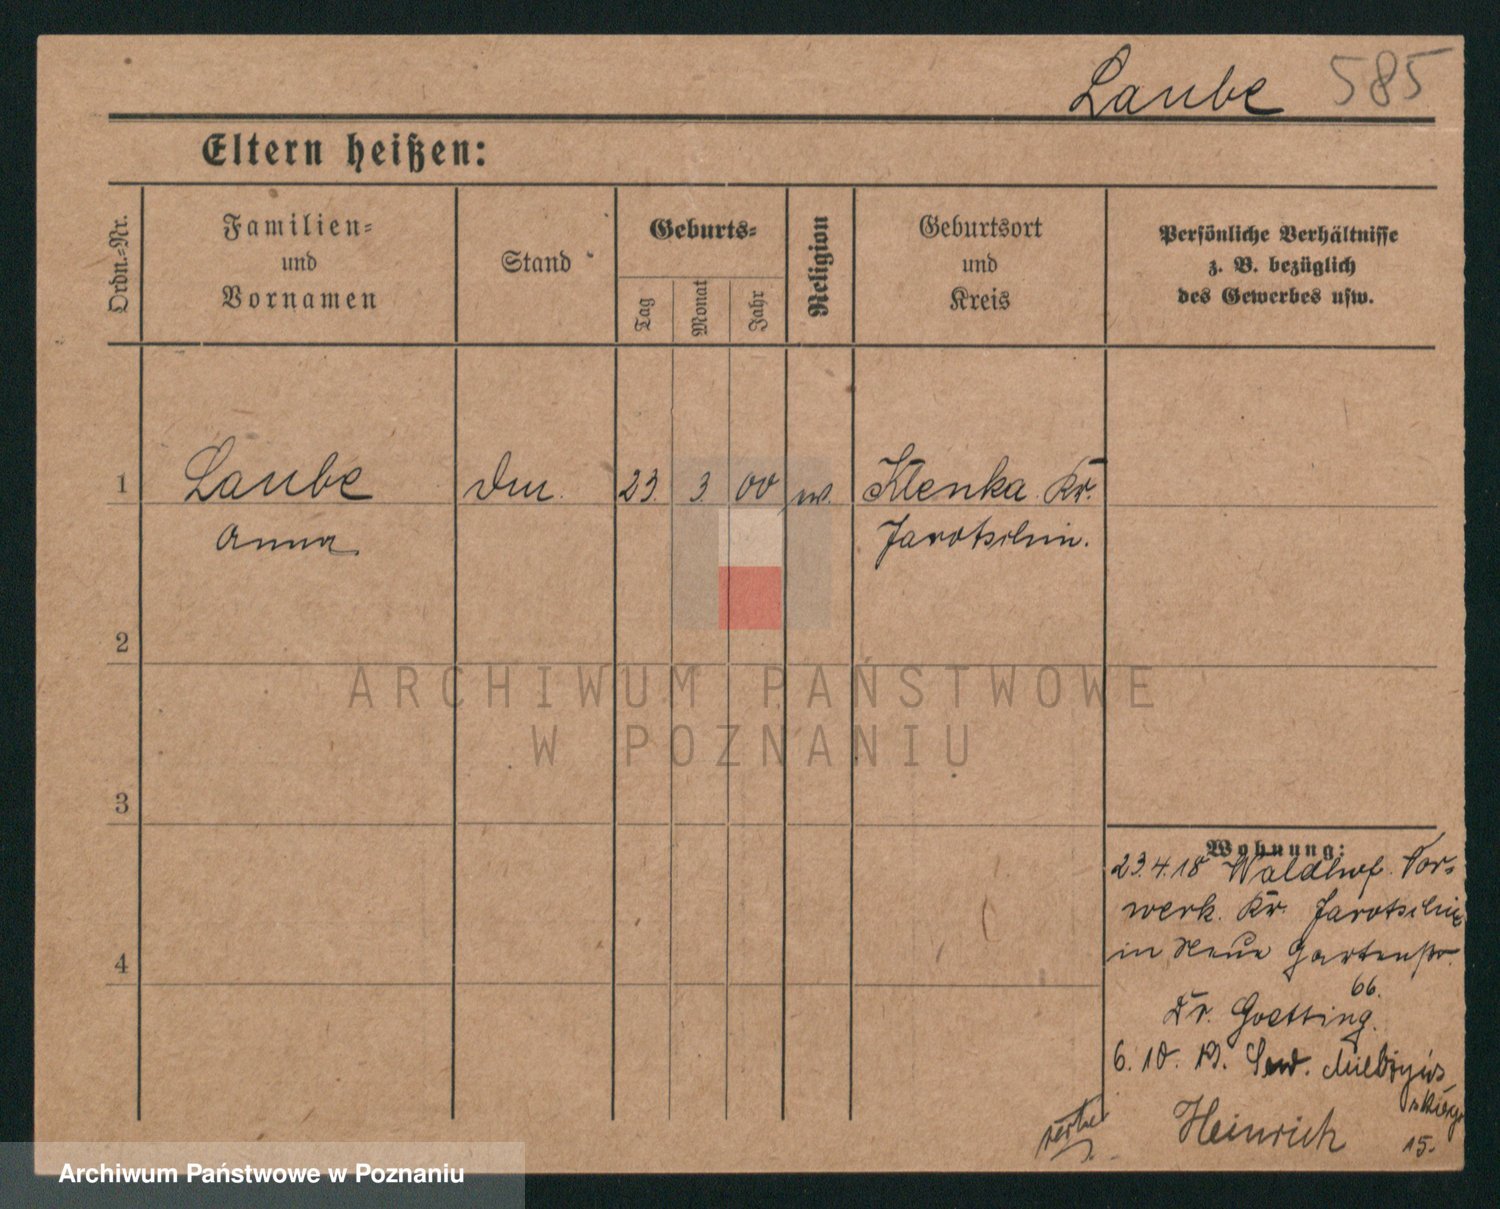 Laube 585
Eltern heißen:
Ordn.-Nr.
Familien-
und
Vornamen
Stand
Geburts-
Tag
Monat
Jahr
Religion
Geburtsort
und
Kreis
Persönliche Verhältnisse
z. B. bezüglich
des Gewerbes usw.
1 Laube 23. 3. 00 Klenka Kr.
Anna Jarotschin.
2
ARCHIWUM PAŃSTWOWE
W POZNANIU
3
Wohnung:
23.4.18 Waldhof. Vor-
werk. Kr. Jarotschin
in Neue Gartenstr.
66.
4
Dr. Goetting.
6. 10. 19.
Heinrich
15.
Archiwum Państwowe w Poznaniu